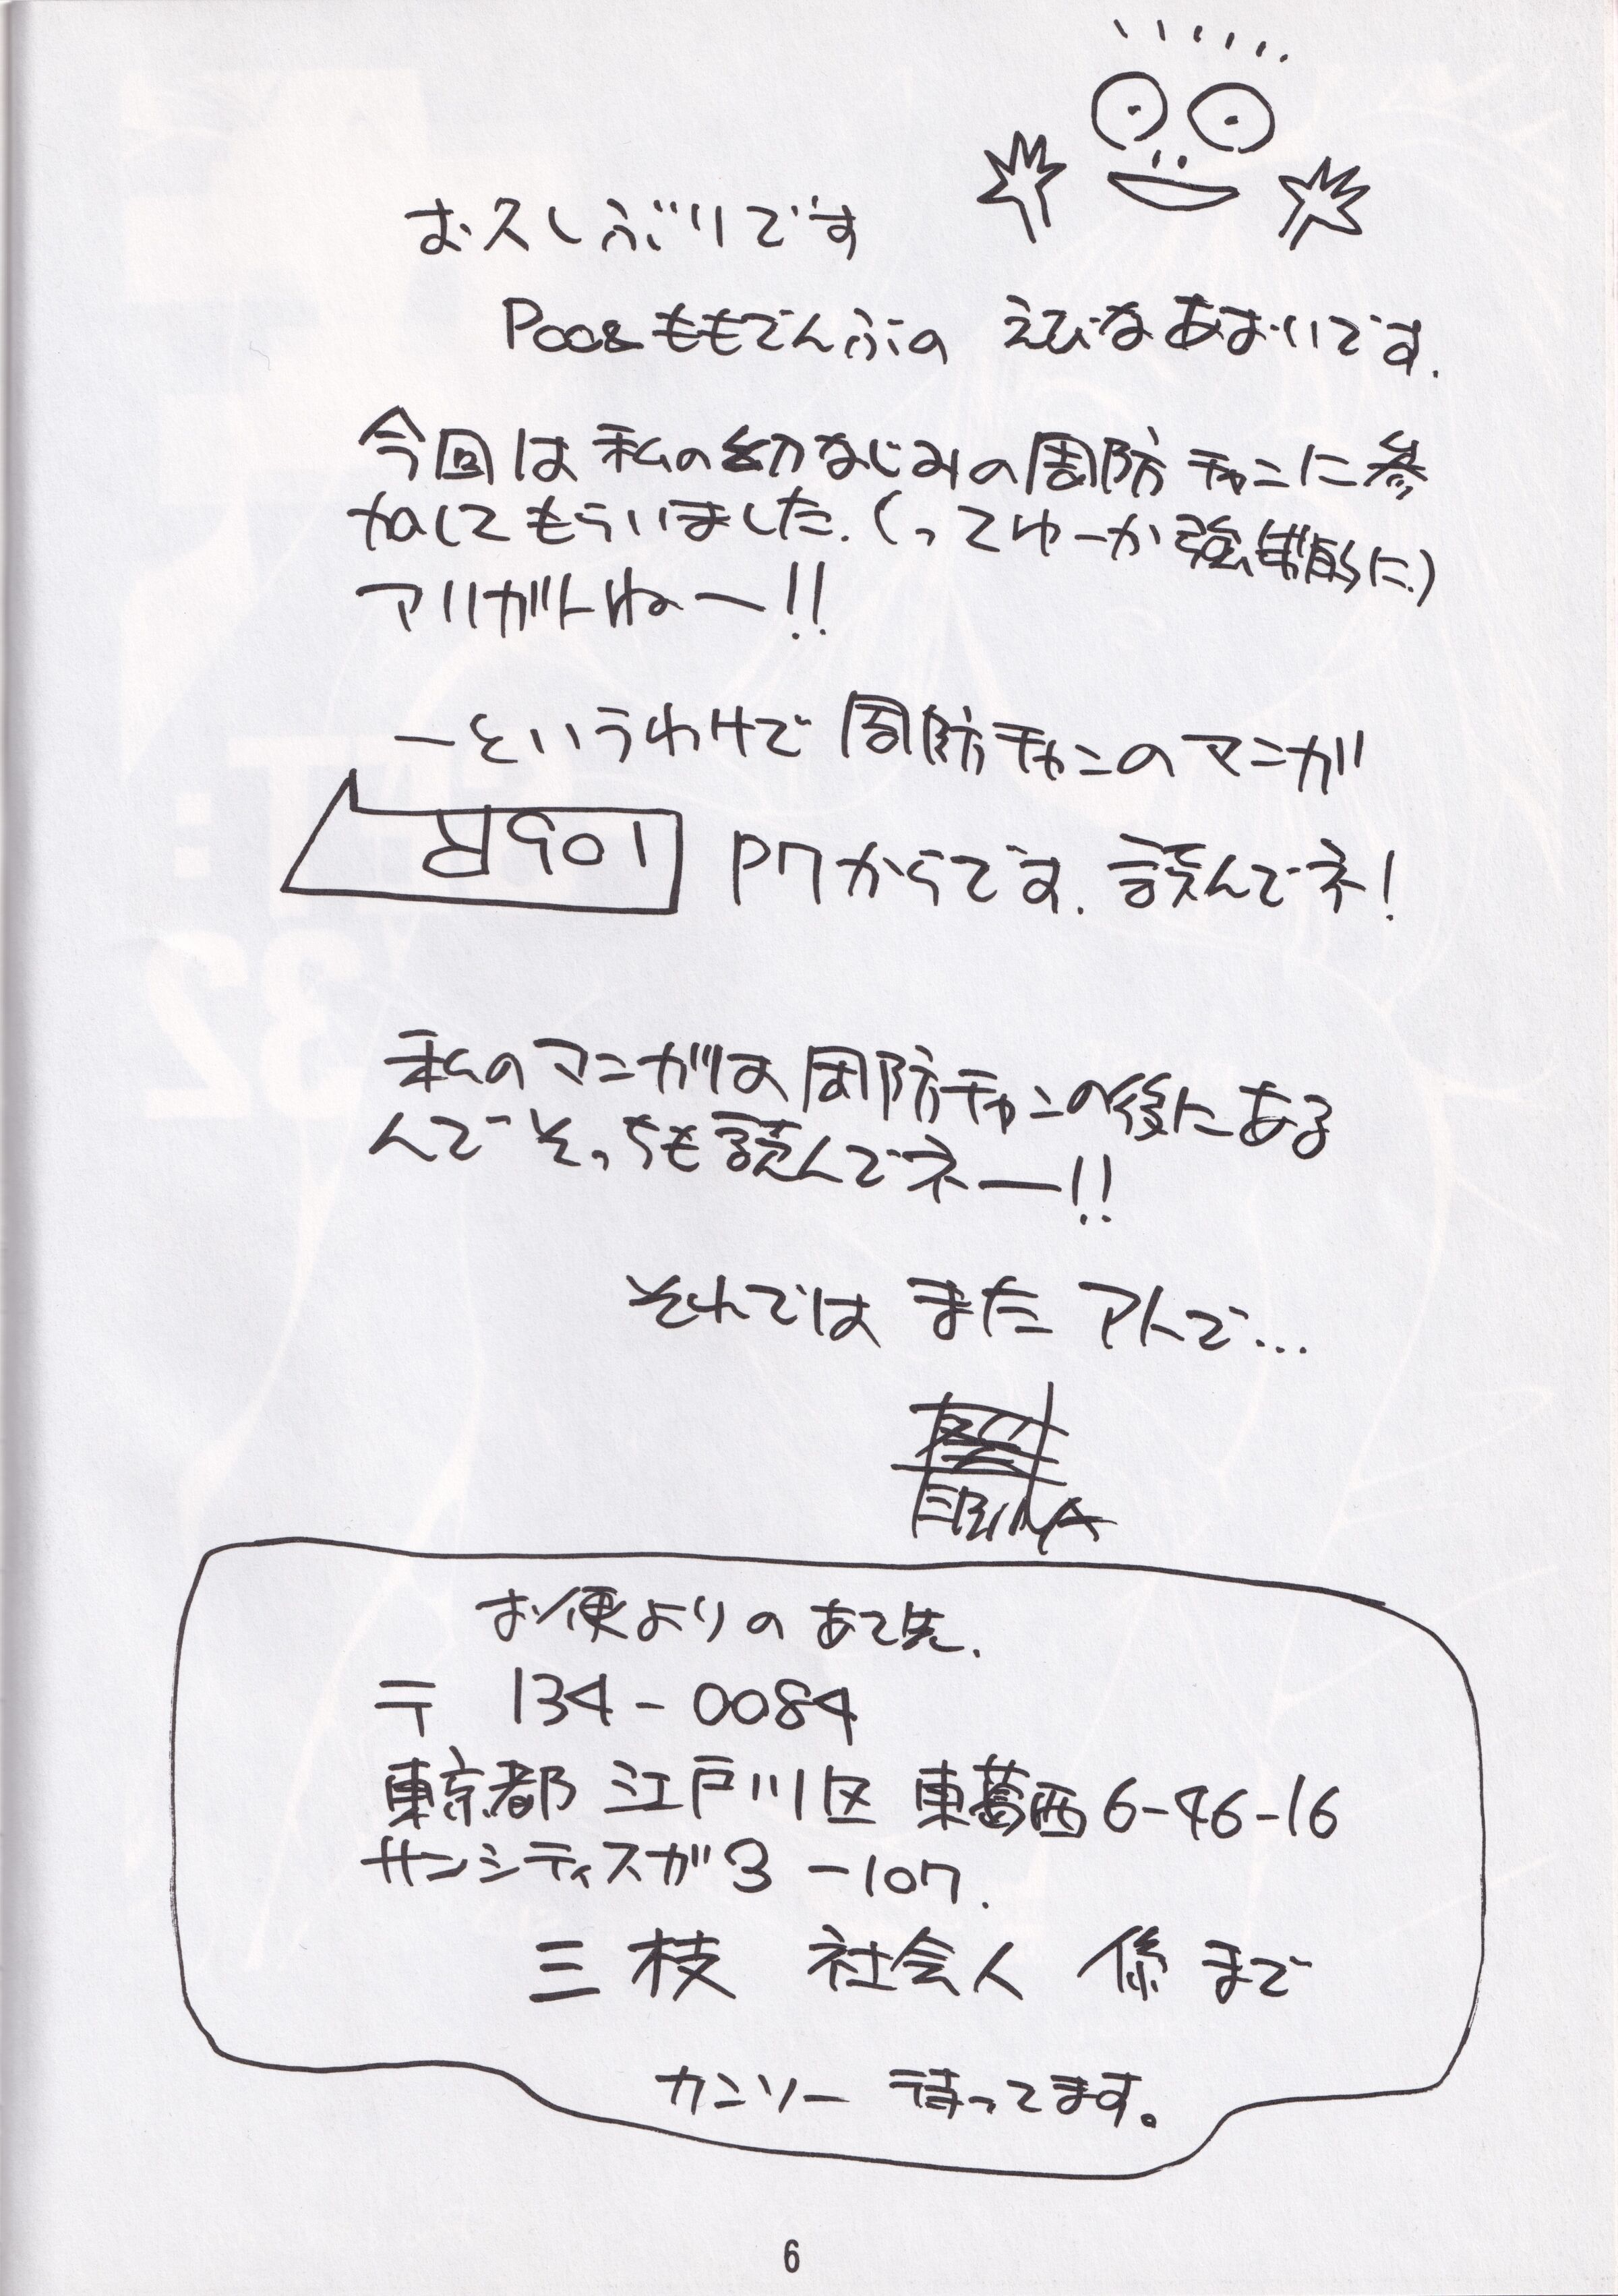 お久しぶりです
Poo&ももでんぶの えびなあおいです.
今回は私の幼なじみの周防チャンに参
加してもらいました.(ってゆーか強制的に.)
アリガトねー!!
ーというわけで周防チャンのマンガ
P7からです.読んでネ!
私のマンガは周防チャンの後にある
んでそっちも読んでネー!!
それでは また アトで...
EBINA
お便よりの あて先.
〒 134-0084
東京都 江戸川区 東葛西6-46-16
サンシティスガ3 -107.
三枝 社会人 係まで
カンソー 待ってます。
6